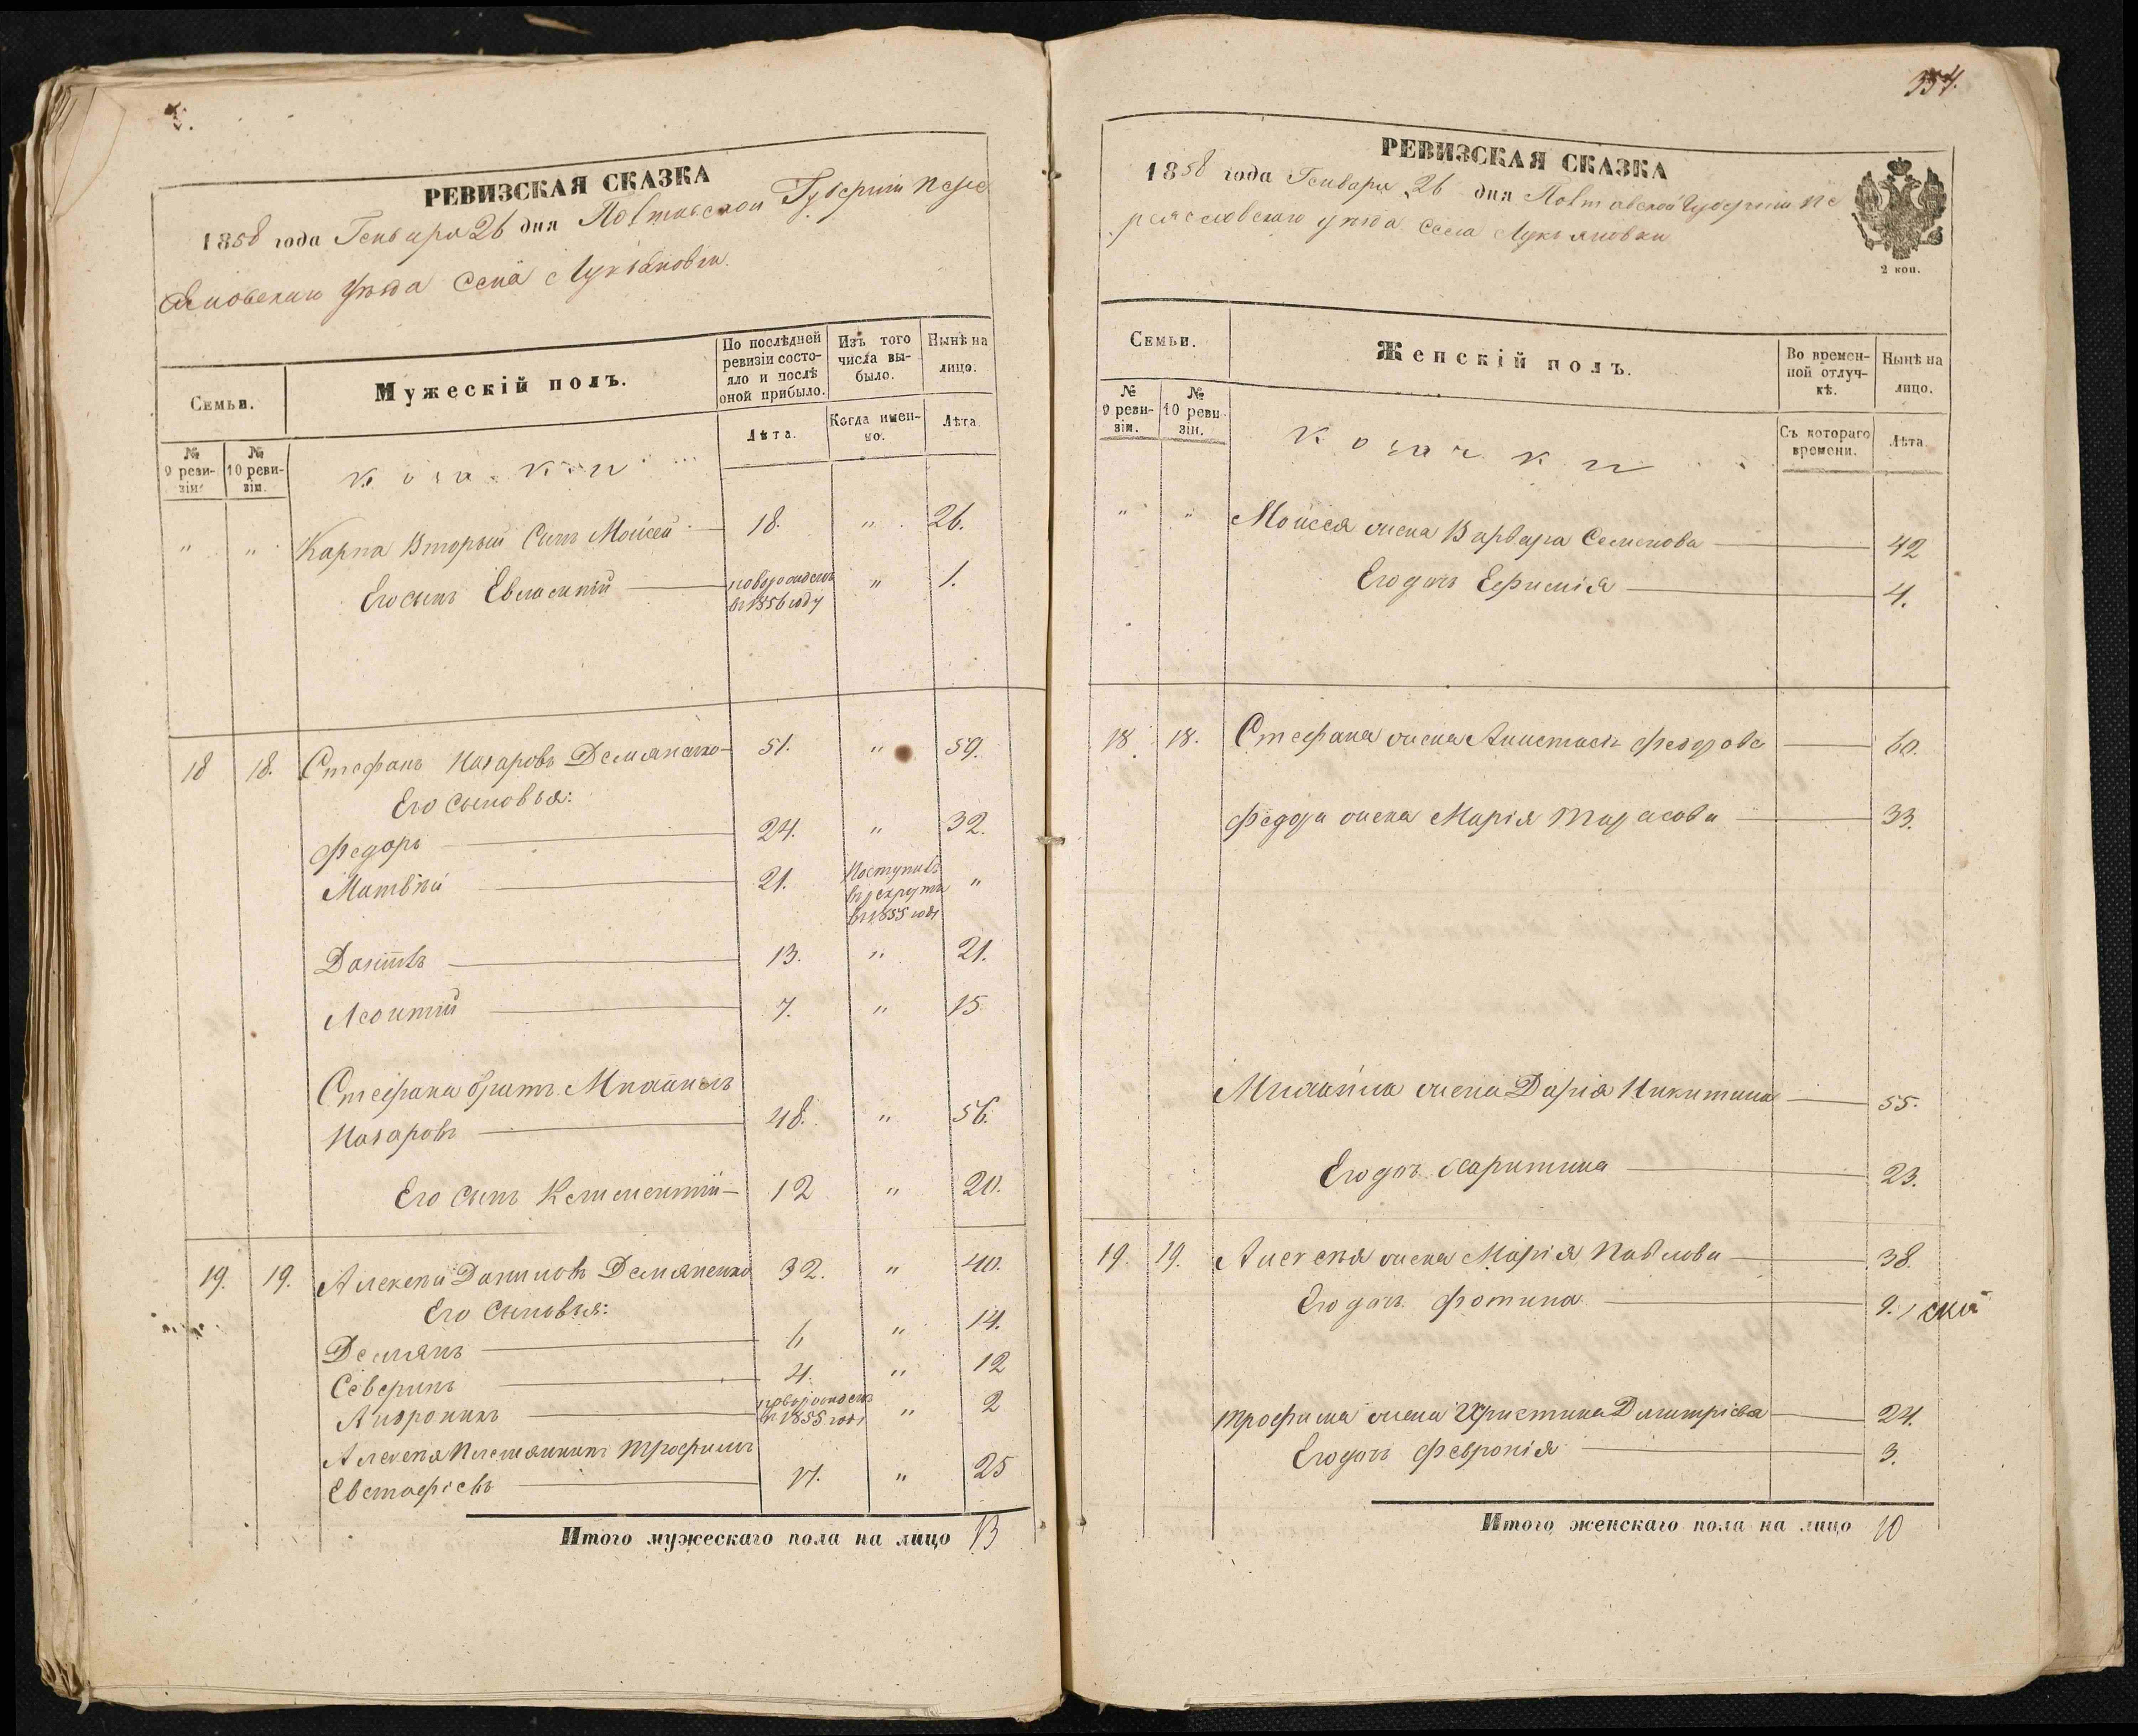 РЕВИЗСКАЯ СКАЗКА
1858 года Генваря 26 дня Полтавской Губерніи Перея
славскаго уѣзда Села Лукьяновки.
Семьи.
Мужескій полъ.
По послѣдней ревизіи состояло и послѣ оной прибыло.
Изъ того числа выбыло.
Нынѣ на лицо.
№ 9 ревизіи.
№ 10 ревизіи.
козаки
Лѣта.
Когда именно.
Лѣта.
" " Карпа Вторый Сынъ Моисей 18. " 26.
Его сынъ Евлампій новорожденъ в 1856 году " 1.
18 18. Стефанъ Назаровъ Демяненко 51. " 59.
Его сыновья:
Федоръ 24. " 32.
Матвѣй 21. Поступилъ в рекруты в 1855 году "
13. " 21.
Леонтій 7. " 15.
Стефана братъ Михаилъ
Назаровъ 48. " 56.
Его сынъ Климентій 12 " 20.
19. 19. Алексѣй Даниловъ Демяненко 32. " 40.
Его сыновья:
Демянъ 6 " 14.
Северинъ 4. " 12
Андроникъ новорожденъ в 1855 году " 2
Алексѣя Племянникъ Трофимъ
Евстафіевъ 17. " 25
Итого мужескаго пола на лицо 13
354.
РЕВИЗСКАЯ СКАЗКА
1858 года Генваря 26 дня Полтавской Губерніи Пе
реяславскаго уѣзда села Лукьяновки
2 коп.
Семьи.
Женскій полъ.
Во временной отлучкѣ.
Нынѣ на лицо.
№ 9 ревизіи.
№ 10 ревизіи.
козачки
Съ котораго времени.
Лѣта.
" " Моисея жена Варвара Семенова 42
Его дочь Ефимія 4.
18 18. Стефана жена Анастасія Феодорова 60.
Федора жена Марія Тарасова 33.
Михаила жена Дарія Никитина 55.
Его дочь Харитина 23.
19. 19. Алексѣя жена Марія Павлова 38.
Его дочь Фотина 9.
Трофима жена Христина Димитріева 24.
Его дочь Февронія 3.
Итого женскаго пола на лицо 10